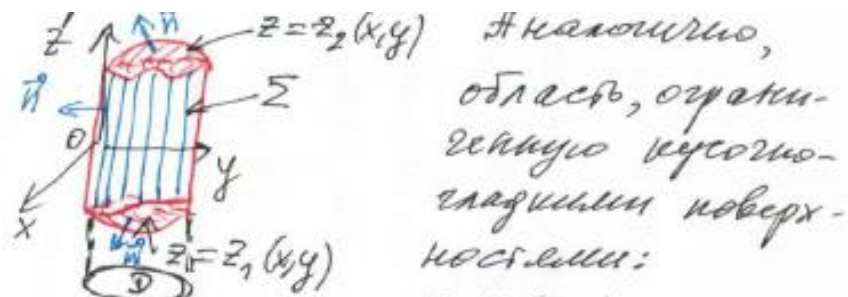 z
n⃗
z = z₂(x,y)
n⃗
Σ
O
y
x
n⃗
z = z₁(x,y)
D
Аналогично,
область, ограни-
ченную кусочно-
гладкими поверх-
ностями: